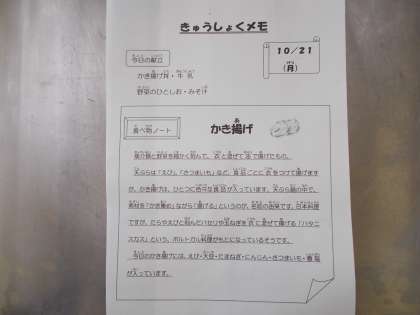 きゅうしょくメモ
10/21
(月)
今日の献立
かき揚げ丼・牛乳
野菜のひとしお・みそ汁
食べ物ノート
かき揚げ
魚介類と野菜を細かく刻んで、衣と混ぜて油で揚げたもの。
天ぷらは「えび」「さつまいも」など、食品ごとに衣をつけて揚げますが、
かき揚げは、ひとつに色々な食品が入っています。天ぷら鍋の中で、
素材を「かき集めながら」「揚げる」というのが、名前の由来です。日本料理
ですが、たらやえびと刻んだパセリや玉ねぎを衣に混ぜて揚げる「パタニ
スカス」という、ポルトガル料理がもとになっているそうです。
今日のかき揚げには、えび・大豆・たまねぎ・にんじん・さつまいも・
が入っています。